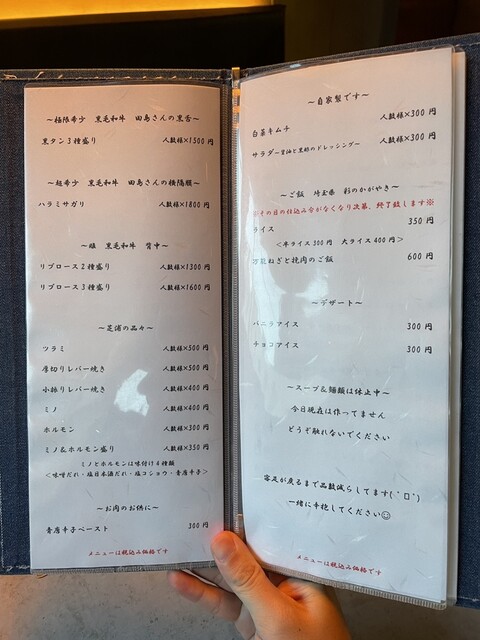 ～極限希少 黒毛和牛 田島さんの黒舌～
黒タン3種盛り 人数様×1500円
～超希少 黒毛和牛 田島さんの横隔膜～
ハラミサガリ 人数様×1800円
～雌 黒毛和牛 背中～
リブロース2種盛り 人数様×1300円
リブロース3種盛り 人数様×1600円
～芝浦の品々～
ツラミ 人数様×500円
厚切りレバー焼き 人数様×500円
小振りレバー焼き 人数様×400円
ミノ 人数様×400円
ホルモン 人数様×300円
ミノ&ホルモン盛り 人数様×350円
ミノとホルモンは味付け4種類
＜味噌だれ・塩日本酒だれ・塩コショウ・青唐辛子＞
～お肉のお供に～
青唐辛子ペースト 300円
メニューは税込み価格です
～自家製です～
白菜キムチ 人数様×300円
サラダ～醤油と黒酢のドレッシング～ 人数様×300円
～ご飯 埼玉県 彩のかがやき～
※その日の仕込み分がなくなり次第、終了致します※
ライス 350円
＜半ライス300円 大ライス400円＞
万能ねぎと挽肉のご飯 600円
～デザート～
バニラアイス 300円
チョコアイス 300円
～スープ&麺類は休止中～
今日現在は作ってません
どうぞ触れないでください
客足が戻るまで品数減らしてます(ﾟロﾟ)
一緒に辛抱してください☺
メニューは税込み価格です